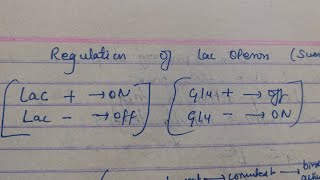 Regulation of Lac Operon (Sum
Lac + → ON Glu + → off
Lac - → Off Glu - → ON
convert →